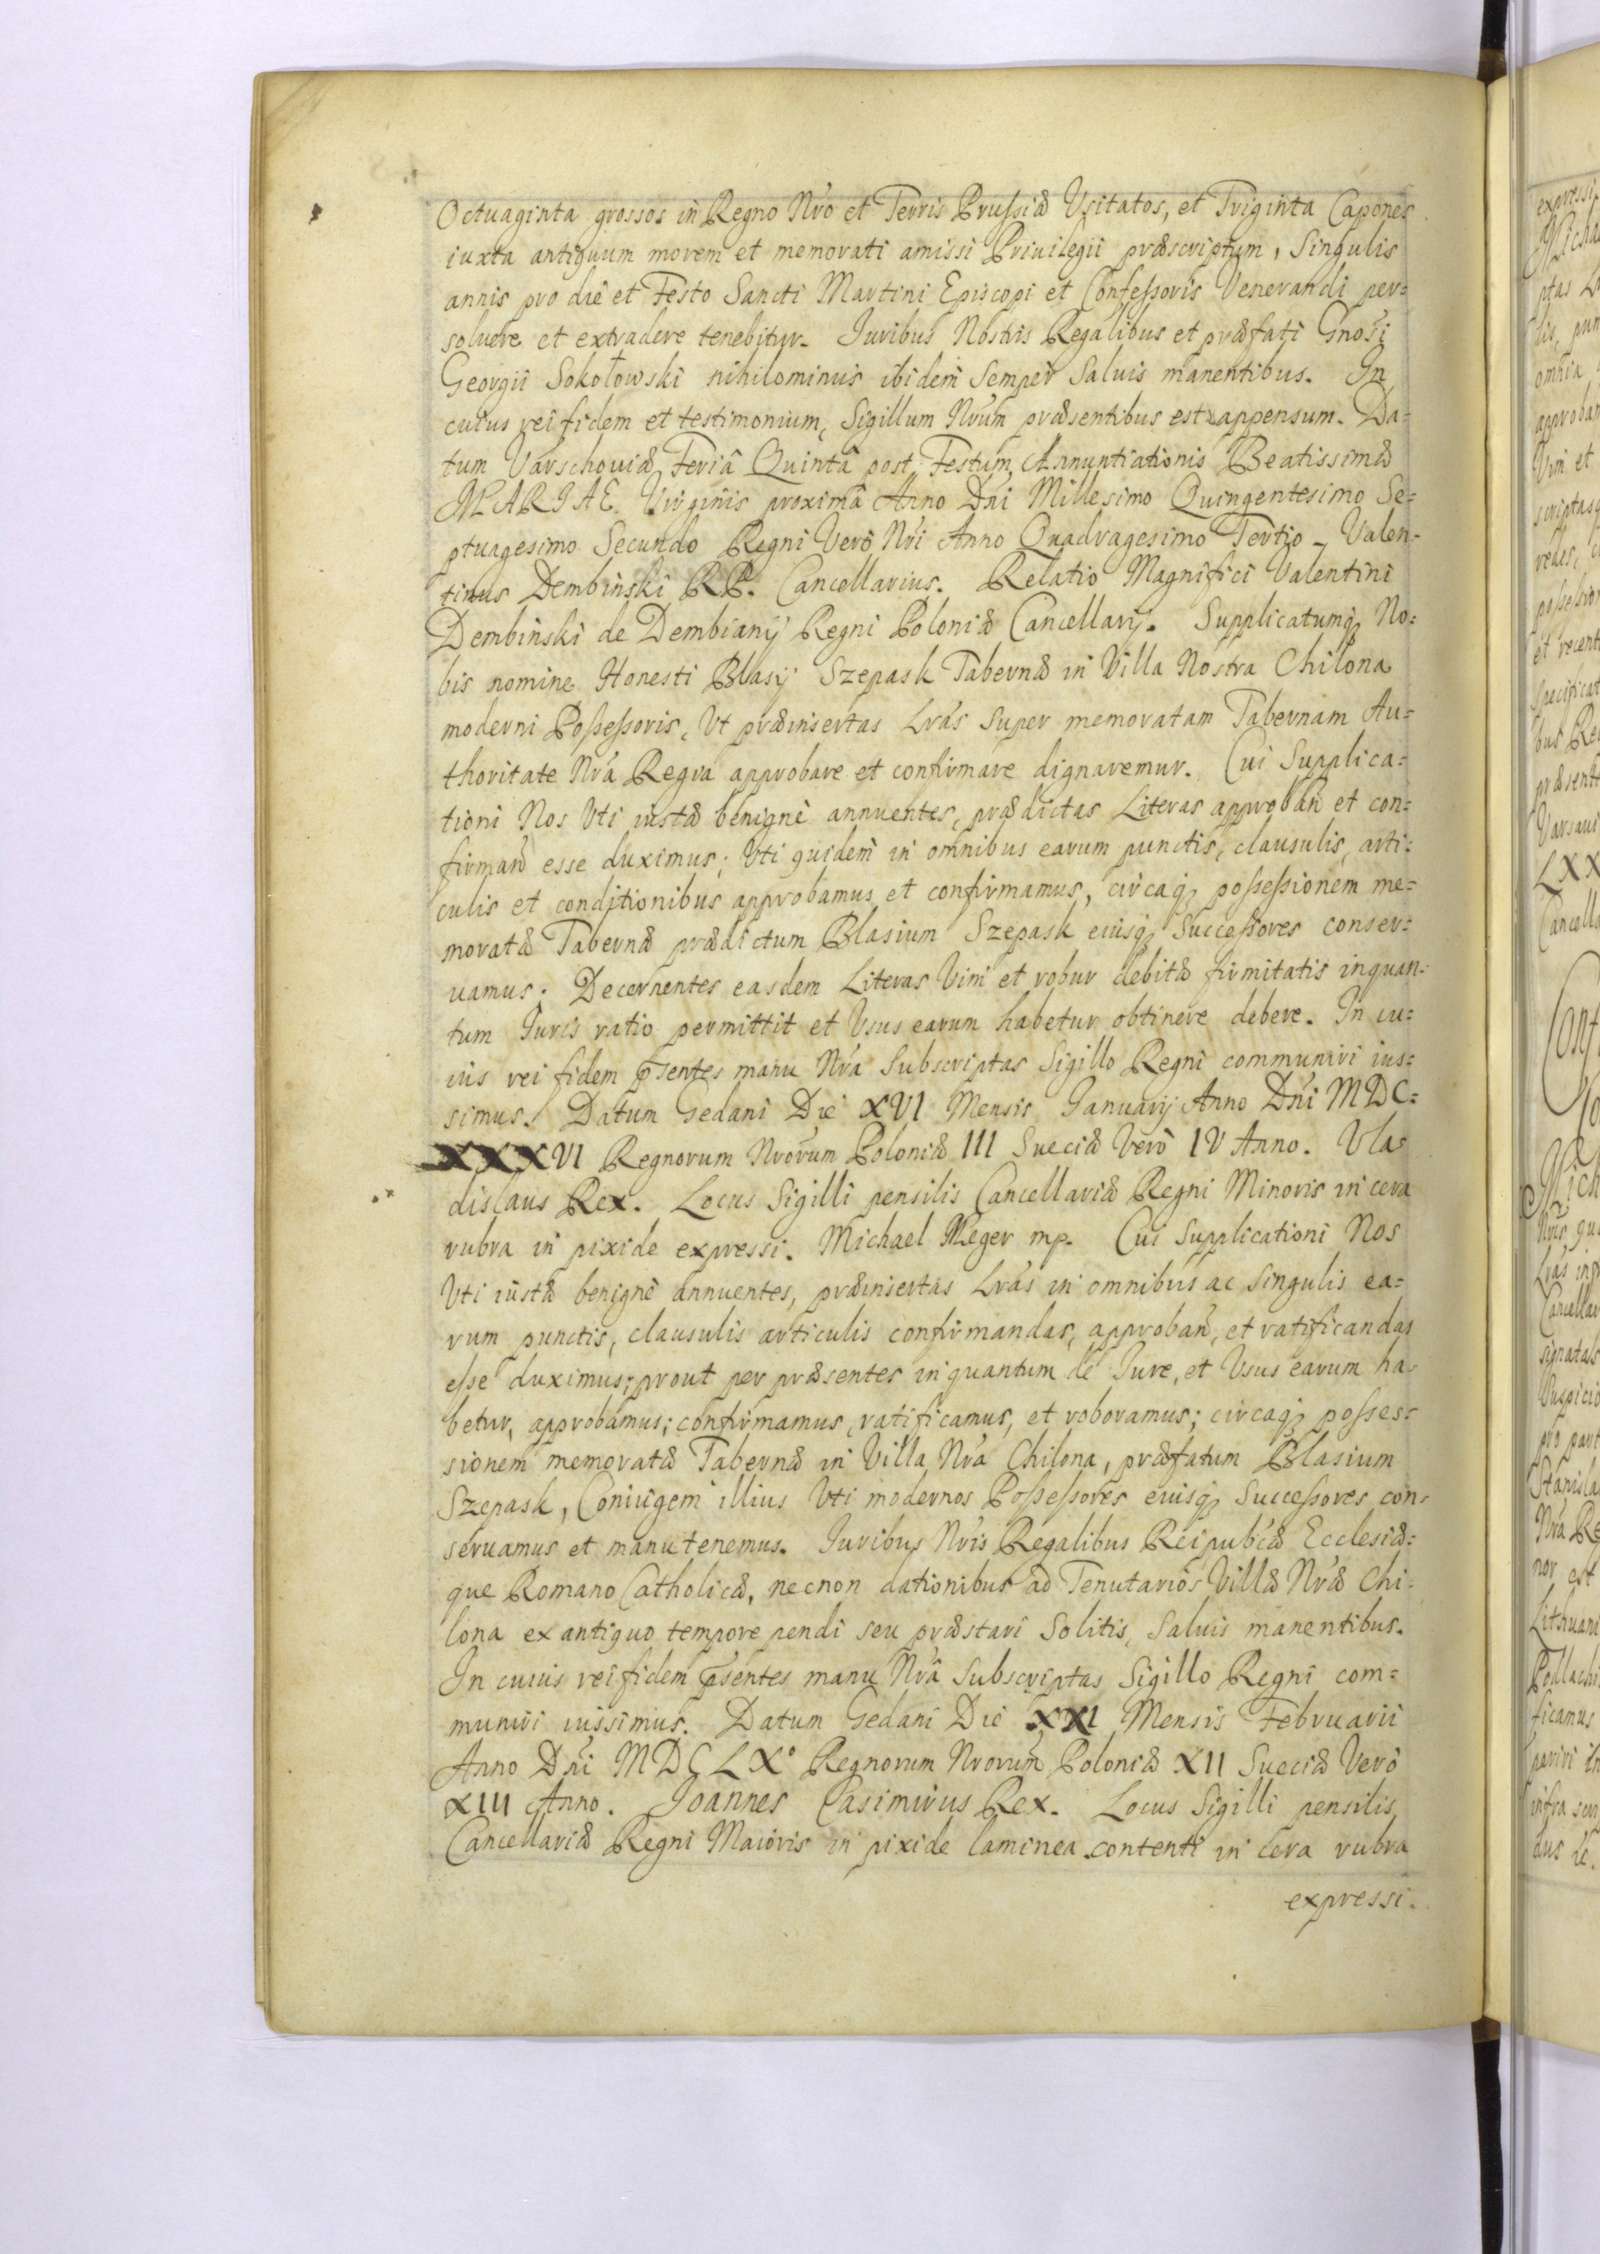 Octuaginta grossos in Regno Nro et Terris Prussiæ Usitatos, et Triginta Capones
iuxta antiquum morem et memorati amissi Priuilegii præscriptum, Singulis
annis pro die et Festo Sancti Martini Episcopi et Confessoris Venerandi per=
soluere et extradere tenebitur. Iuribus Nostris Regalibus et præfati Gnosi
Georgii Sokołowski nihilominus ibidem Semper Saluis manentibus. In
cuius rei fidem et testimonium, Sigillum Nrum præsentibus est appensum. Da=
tum Varschouiæ Feriâ Quintâ post Festum Annuntiationis Beatissimæ
MARIAE Virginis proximâ Anno Dni Millesimo Quingentesimo Se=
ptuagesimo Secundo Regni Verò Nri Anno Quadragesimo Tertio _ Valen=
tinus Dembinski RP. Cancellarius. Relatio Magnifici Valentini
Dembinski de Dembiany Regni Poloniæ Cancellarij. Supplicatumq No=
bis nomine Honesti Blasij Szepask Tabernæ in Villa Nostra Chilona
moderni Possessoris, Ut præinsertas Lras Super memoratam Tabernam Au=
thoritate Nra Regia approbare et confirmare dignaremur. Cui Supplica=
tioni Nos Uti iustæ benignè annuentes, prædictas Literas approban et con=
firmand esse duximus; Uti quidem in omnibus earum punctis, clausulis, arti=
culis et conditionibus approbamus et confirmamus, circaq possessionem me=
moratæ Tabernæ prædictum Blasium Szepask eiusq Successores conser=
uamus. Decernentes easdem Literas Vim et robur debitæ firmitatis inquan=
tum Iuris ratio permittit et Usus earum habetur obtinere debere. In cu=
ius rei fidem psentes manu Nra Subscriptas Sigillo Regni communiri ius=
simus. Datum Gedani Die XVI Mensis Ianuarij Anno Dni MDC=
XXXVI Regnorum Nrorum Poloniæ III Sueciæ Verò IV Anno. Vla=
dislaus Rex. Locus Sigilli pensilis Cancellariæ Regni Minoris in cera
rubra in pixide expressi. Michael Meger mp. Cui Supplicationi Nos
Uti iustæ benignè annuentes, præinsertas Lras in omnibus ac Singulis ea=
rum punctis, clausulis articulis confirmandas, approban, et ratificandas
esse duximus; prout per præsentes inquantum de Iure, et Usus earum ha=
betur, approbamus; confirmamus, ratificamus, et roboramus; circaq posses=
sionem memoratæ Tabernæ in Villa Nra Chilona, præfatum Blasium
Szepask, Coniugem illius Uti modernos Possessores eiusq Successores con=
seruamus et manutenemus. Iuribus Nris Regalibus Reipubcæ Ecclesiæ=
que Romano Catholicæ, necnon dationibus ad Tenutarios Villæ Nræ Chi=
lona ex antiquo tempore pendi seu præstari Solitis, Saluis manentibus.
In cuius rei fidem psentes manu Nrâ Subscriptas Sigillo Regni com=
muniri iussimus. Datum Gedani Die XXI Mensis Februarii
Anno Dni MDCLX° Regnorum Nrorum Poloniæ XII Sueciæ Verò
XIII Anno. Joannes Casimirus Rex. Locus Sigilli pensilis
Cancellariæ Regni Maioris in pixide laminea contenti in cera rubra
expressi.